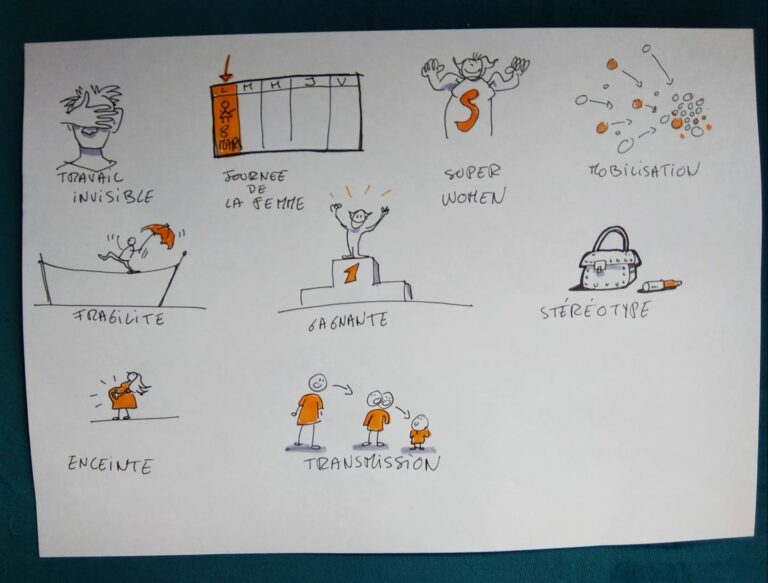 TRAVAIL
INVISIBLE
L M M J V
8
MARS
JOURNEE
DE
LA FEMME
S
SUPER
WOMEN
MOBILISATION
FRAGILITE
1
GAGNANTE
STÉRÉOTYPE
ENCEINTE
TRANSMISSION